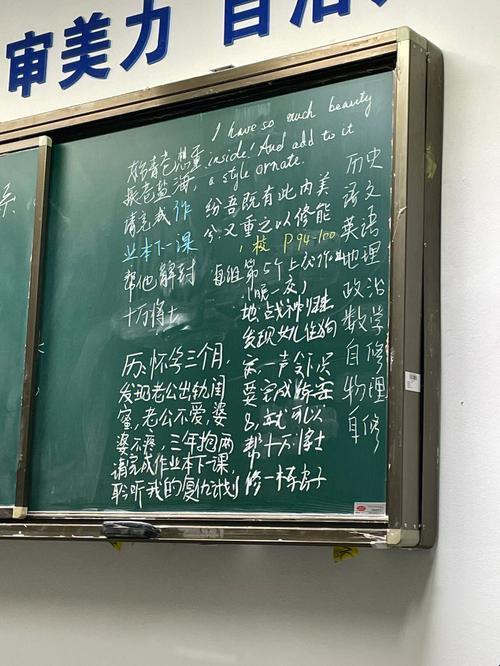 审美力
I have so much beauty
inside! And add to it
a style ornate.
纷吾既有此内美
兮又重之以修能
校 P94-100
请完成作
业本下一课
帮他解封
十万将士
每组第5个上交作业
历:怀孕三个月,
发现老公出轨闺
蜜,老公不爱,婆
婆不疼,三年抱两
请完成作业本下一课,
聆听我的复仇计划
地战神归来
发现女儿住狗
一声令下
要完成
就可以
帮十万将士
修一栋房子
历史
语文
英语
地理
政治
数学
自修
物理
自修